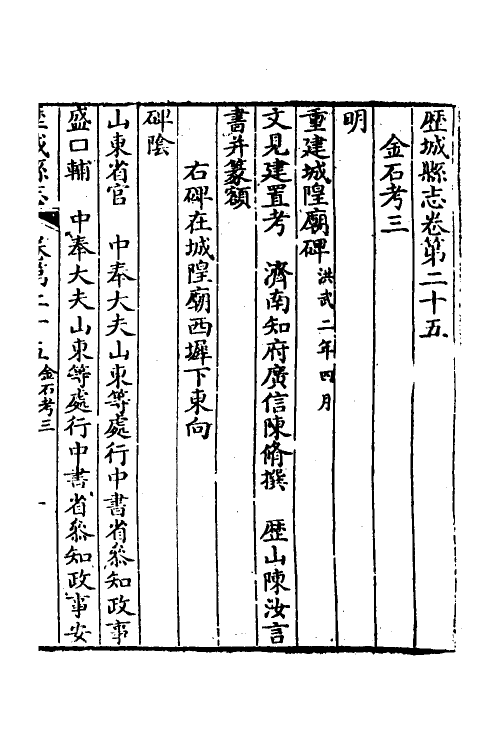 歴城縣志卷第二十五
金石考三
明
重建城隍廟碑洪武二年四月
文見建置考　濟南知府廣信陳脩撰　歴山陳汝言
書并篆額
右碑在城隍廟西墀下東向
碑陰
山東省官　中奉大夫山東等處行中書省叅知政事
盛口輔　中奉大夫山東等處行中書省叅知政事安
歴城縣志　卷第二十五　金石考三　一